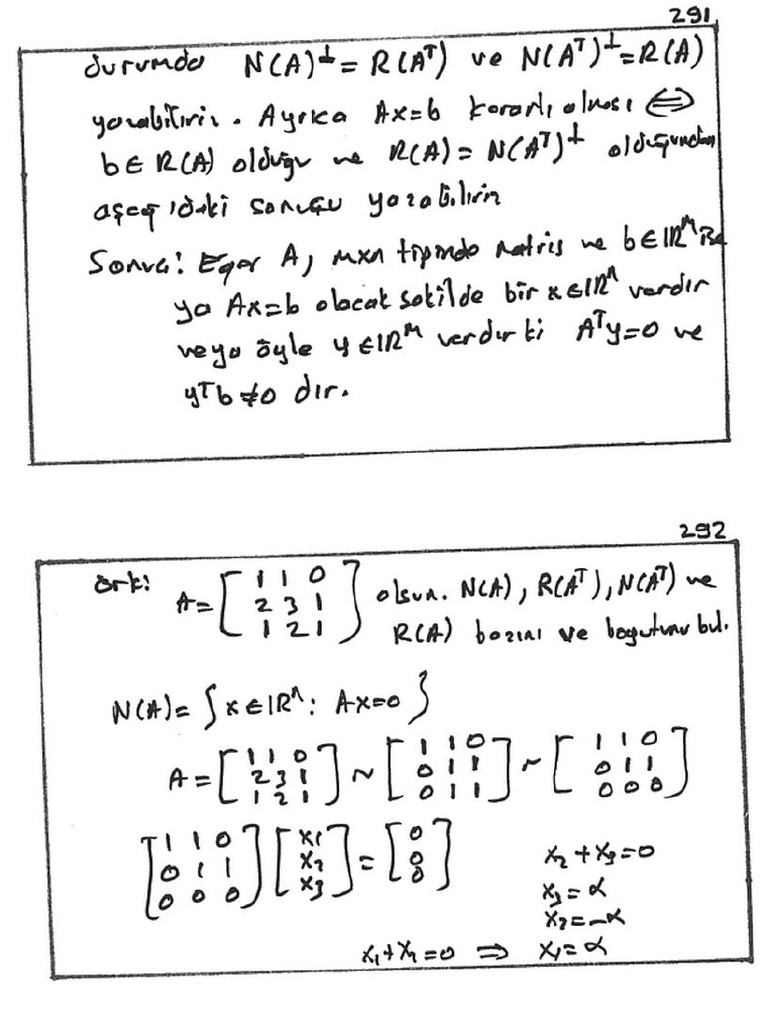 291
durumda N(A)⊥ = R(Aᵀ) ve N(Aᵀ)⊥ = R(A)
yazabiliriz. Ayrıca Ax=b kararlı olması ⇔
b∈R(A) olduğu ve R(A) = N(Aᵀ)⊥ olduğundan
aşağıdaki sonucu yazabiliriz
Sonuç: Eğer A, mxn tipinde matris ve b∈ℝᵐ ise
ya Ax=b olacak şekilde bir x∈ℝⁿ vardır
veya öyle y∈ℝᵐ vardır ki Aᵀy=0 ve
yᵀb≠0 dır.
292
örk: A = [1 1 0; 2 3 1; 1 2 1] olsun. N(A), R(Aᵀ), N(Aᵀ) ve
R(A) bazını ve boyutunu bul.
N(A) = {x∈ℝⁿ: Ax=0}
A = [1 1 0; 2 3 1; 1 2 1] ~ [1 1 0; 0 1 1; 0 1 1] ~ [1 1 0; 0 1 1; 0 0 0]
[1 1 0; 0 1 1; 0 0 0] [x₁; x₂; x₃] = [0; 0; 0]
x₂+x₃=0
x₃=α
x₂=-α
x₁+x₂=0 ⇒ x₁=α